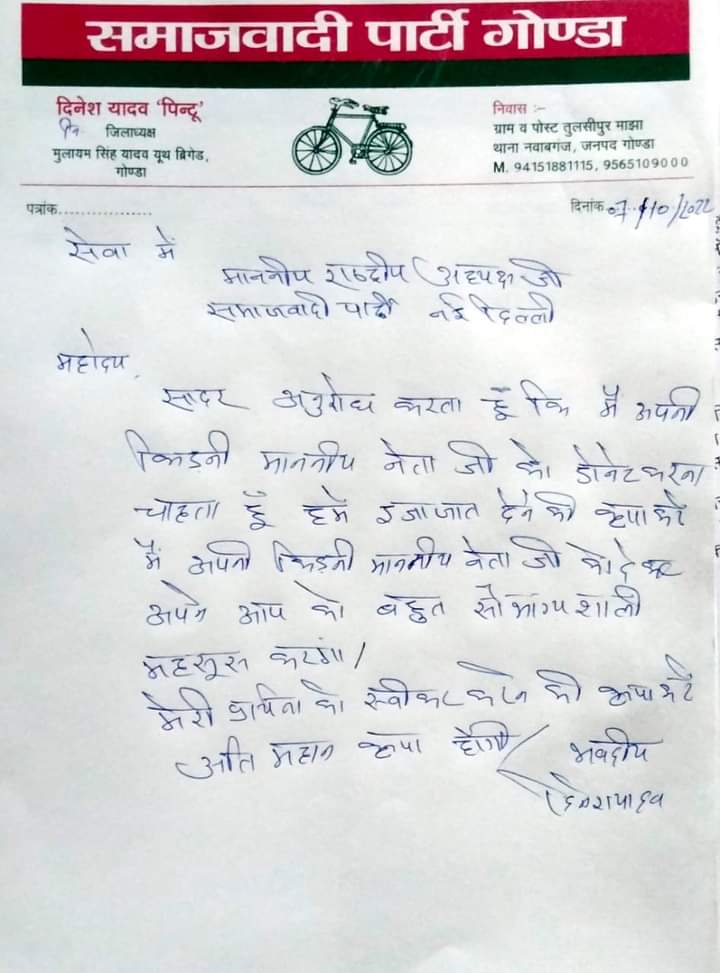 समाजवादी पार्टी गोण्डा
दिनेश यादव 'पिन्टू'
जिलाध्यक्ष
मुलायम सिंह यादव यूथ ब्रिगेड,
गोण्डा
निवास :-
ग्राम व पोस्ट तुलसीपुर माझा
थाना नवाबगंज, जनपद गोण्डा
M. 94151881115, 9565109000
पत्रांक....................
दिनांक 07/10/2022
सेवा में
माननीय राष्ट्रीय अध्यक्ष जी
समाजवादी पार्टी नई दिल्ली
महोदय,
सादर अनुरोध करता हूँ कि मैं अपनी
किडनी माननीय नेता जी को डोनेट करना
चाहता हूँ हमे इजाजात देने की कृपा करे
मैं अपनी किडनी माननीय नेता जी को देकर
अपने आप को बहुत सौभाग्यशाली
महसूस करूंगा।
मेरी प्रार्थना को स्वीकार करने की कृपा करें
अति महान कृपा होगी।
भवदीय
दिनेश यादव